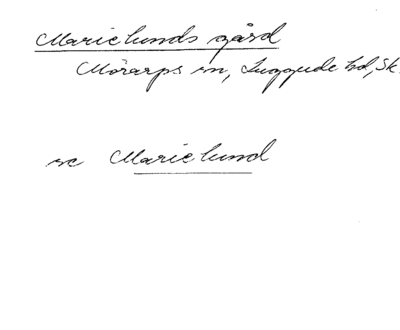 Marielunds gård
Mörarps sn, Luggude hd, Sk.
se Marielund